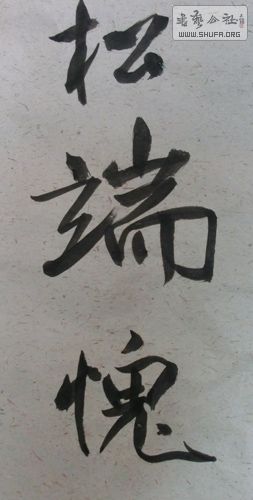 松端愧
书艺公社
WWW.SHUFA.ORG